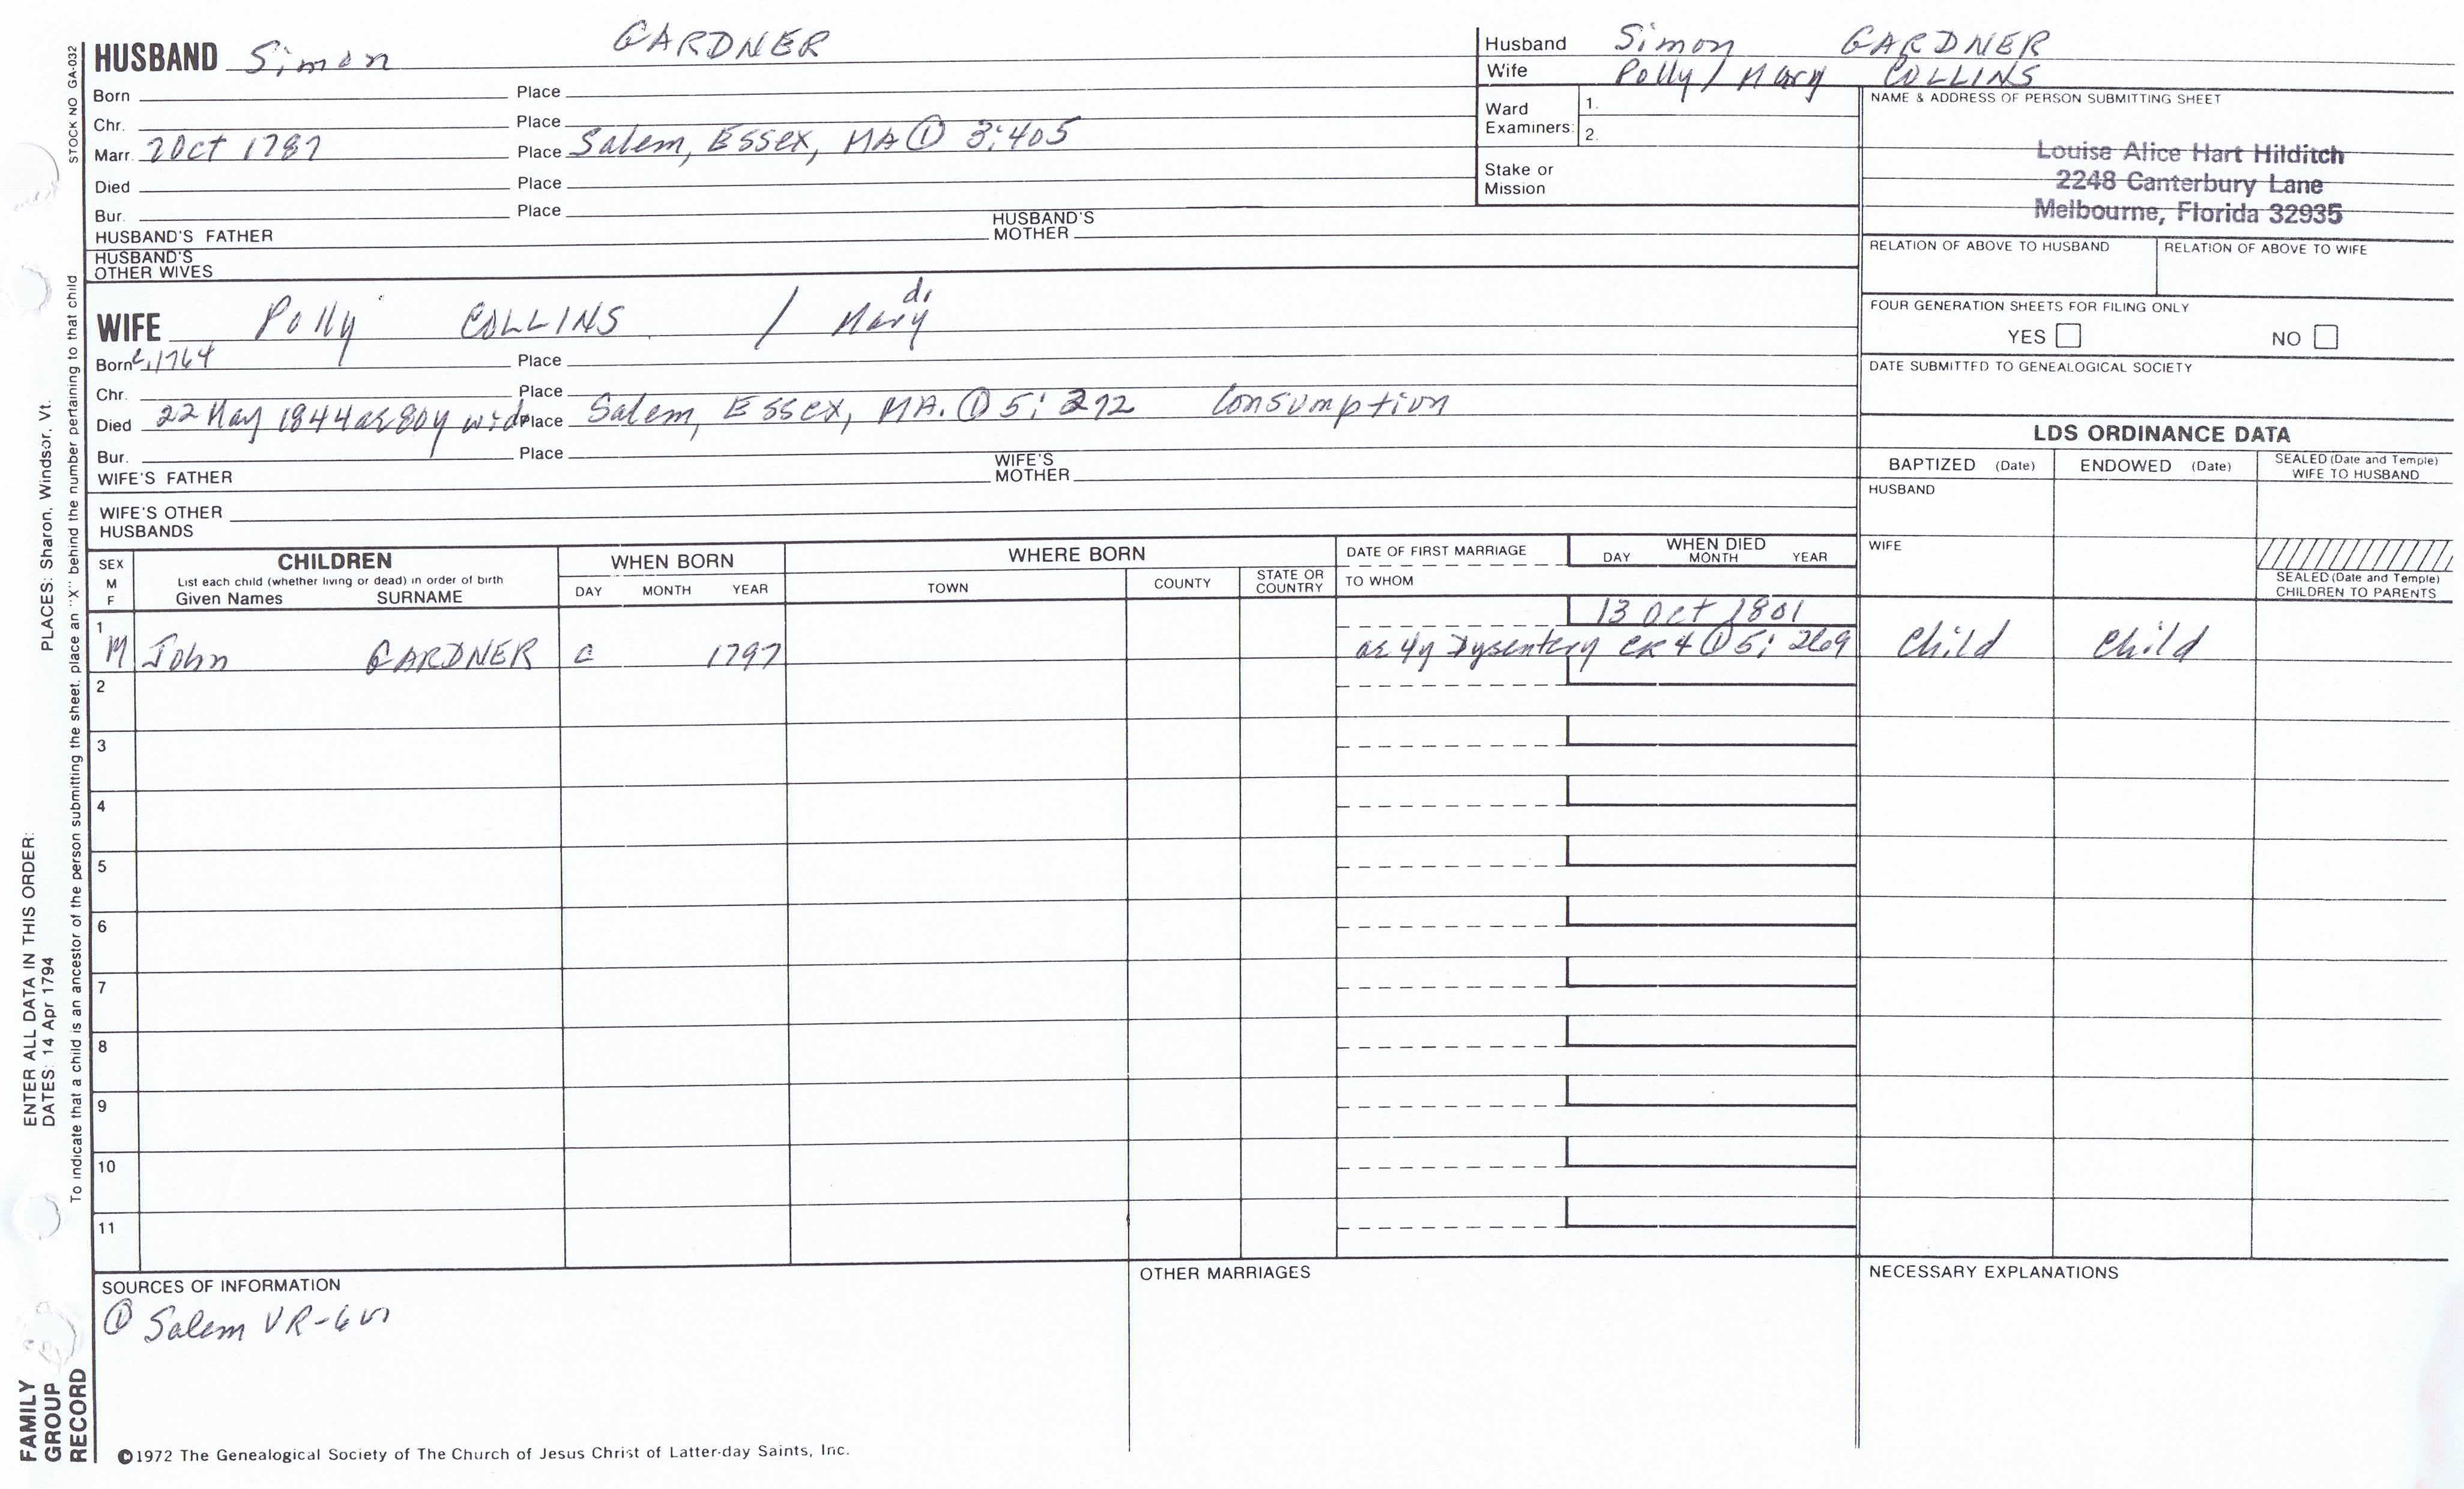 STOCK NO GA-032
HUSBAND Simon GARDNER
Born Place
Chr. Place
Marr. 7 Oct 1787 Place Salem, Essex, MA ① 3:405
Died Place
Bur. Place
HUSBAND'S FATHER HUSBAND'S MOTHER
HUSBAND'S OTHER WIVES
WIFE Polly COLLINS / Mary d.
Born c. 1764 Place
Chr. Place
Died 22 May 1844 ae 80y wid Place Salem, Essex, MA. ① 5: 272 Consumption
Bur. Place
WIFE'S FATHER WIFE'S MOTHER
WIFE'S OTHER HUSBANDS
Husband Simon GARDNER
Wife Polly / Mary COLLINS
Ward Examiners: 1.
2.
Stake or Mission
NAME & ADDRESS OF PERSON SUBMITTING SHEET
Louise Alice Hart Hilditch
2248 Canterbury Lane
Melbourne, Florida 32935
RELATION OF ABOVE TO HUSBAND RELATION OF ABOVE TO WIFE
FOUR GENERATION SHEETS FOR FILING ONLY
YES NO
DATE SUBMITTED TO GENEALOGICAL SOCIETY
LDS ORDINANCE DATA
BAPTIZED (Date) ENDOWED (Date) SEALED (Date and Temple) WIFE TO HUSBAND
HUSBAND
WIFE
SEALED (Date and Temple) CHILDREN TO PARENTS
SEX M F
CHILDREN
List each child (whether living or dead) in order of birth
Given Names SURNAME
WHEN BORN
DAY MONTH YEAR
WHERE BORN
TOWN COUNTY STATE OR COUNTRY
DATE OF FIRST MARRIAGE
TO WHOM
WHEN DIED
DAY MONTH YEAR
1 13 Oct 1801
M John GARDNER c 1797 ae 4y Dysentery CR4 ① 5: 269 Child Child
2
3
4
5
6
7
8
9
10
11
SOURCES OF INFORMATION
① Salem VR-6 v
OTHER MARRIAGES
NECESSARY EXPLANATIONS
©1972 The Genealogical Society of The Church of Jesus Christ of Latter-day Saints, Inc.
ENTER ALL DATA IN THIS ORDER:
DATES: 14 Apr 1794 PLACES: Sharon, Windsor, Vt.
To indicate that a child is an ancestor of the person submitting the sheet, place an "X" behind the number pertaining to that child
FAMILY
GROUP
RECORD